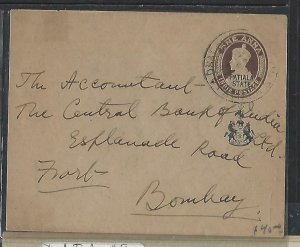 ONE ANNA
PATIALA
STATE
The Accountant
The Central Bank of India
Ltd.
Esplanade Road
Fort
Bombay.